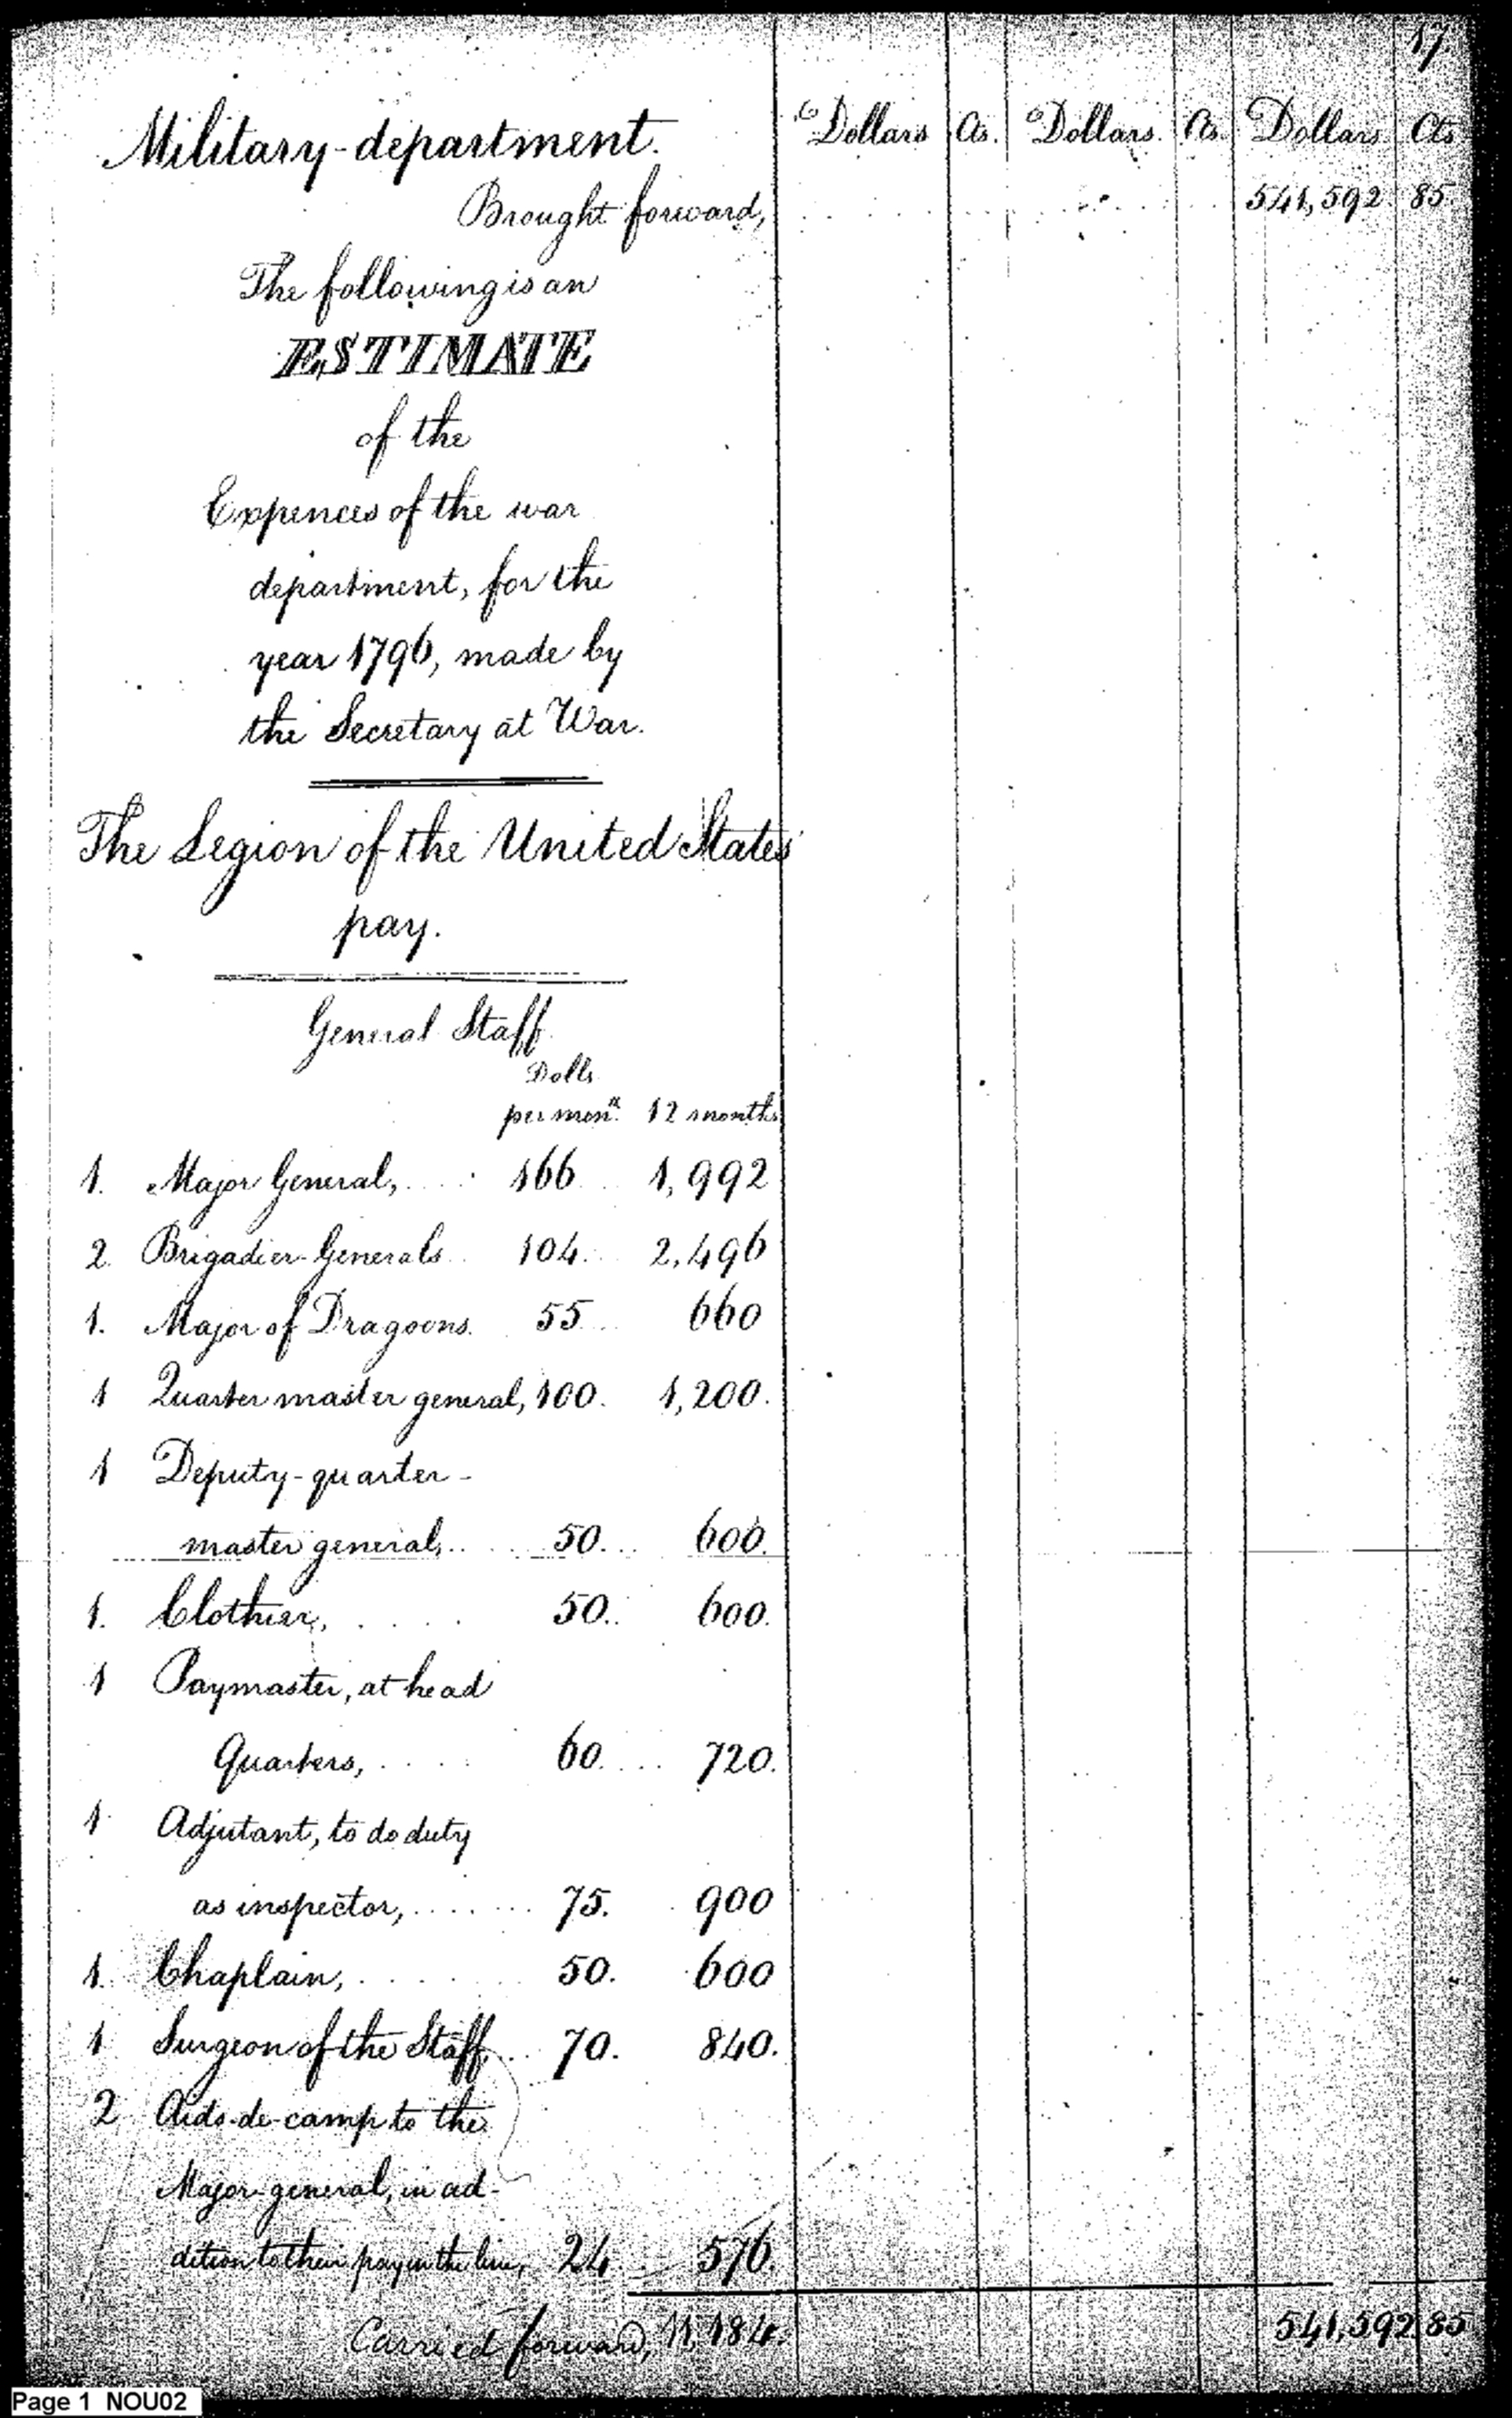 17.
Military-department. Dollars Cts. Dollars. Cts. Dollars Cts
Brought forward, 541,592. 85
The following is an
ESTIMATE
of the
Expences of the war
department, for the
year 1796, made by
the Secretary at War.
The Legion of the United States
pay.
General Staff.
Dolls
per monh. 12 months
1. Major General, 166 1,992
2. Brigadier-Generals 104. 2,496
1. Major of Dragoons. 55 660
1 Quarter master general, 100. 1,200.
1 Deputy-quarter-
master general, 50. 600.
1. Clothier, 50. 600.
1 Paymaster, at head
Quarters, 60. 720.
1 Adjutant, to do duty
as inspector, 75. 900
1. Chaplain, 50. 600
1 Surgeon of the Staff, 70. 840.
2 Aids-de-camp to the
Major-general, in ad-
dition to their pay in the line, 24. 576.
Carried forward, 11,184. 541,592 85
Page 1 NOU02